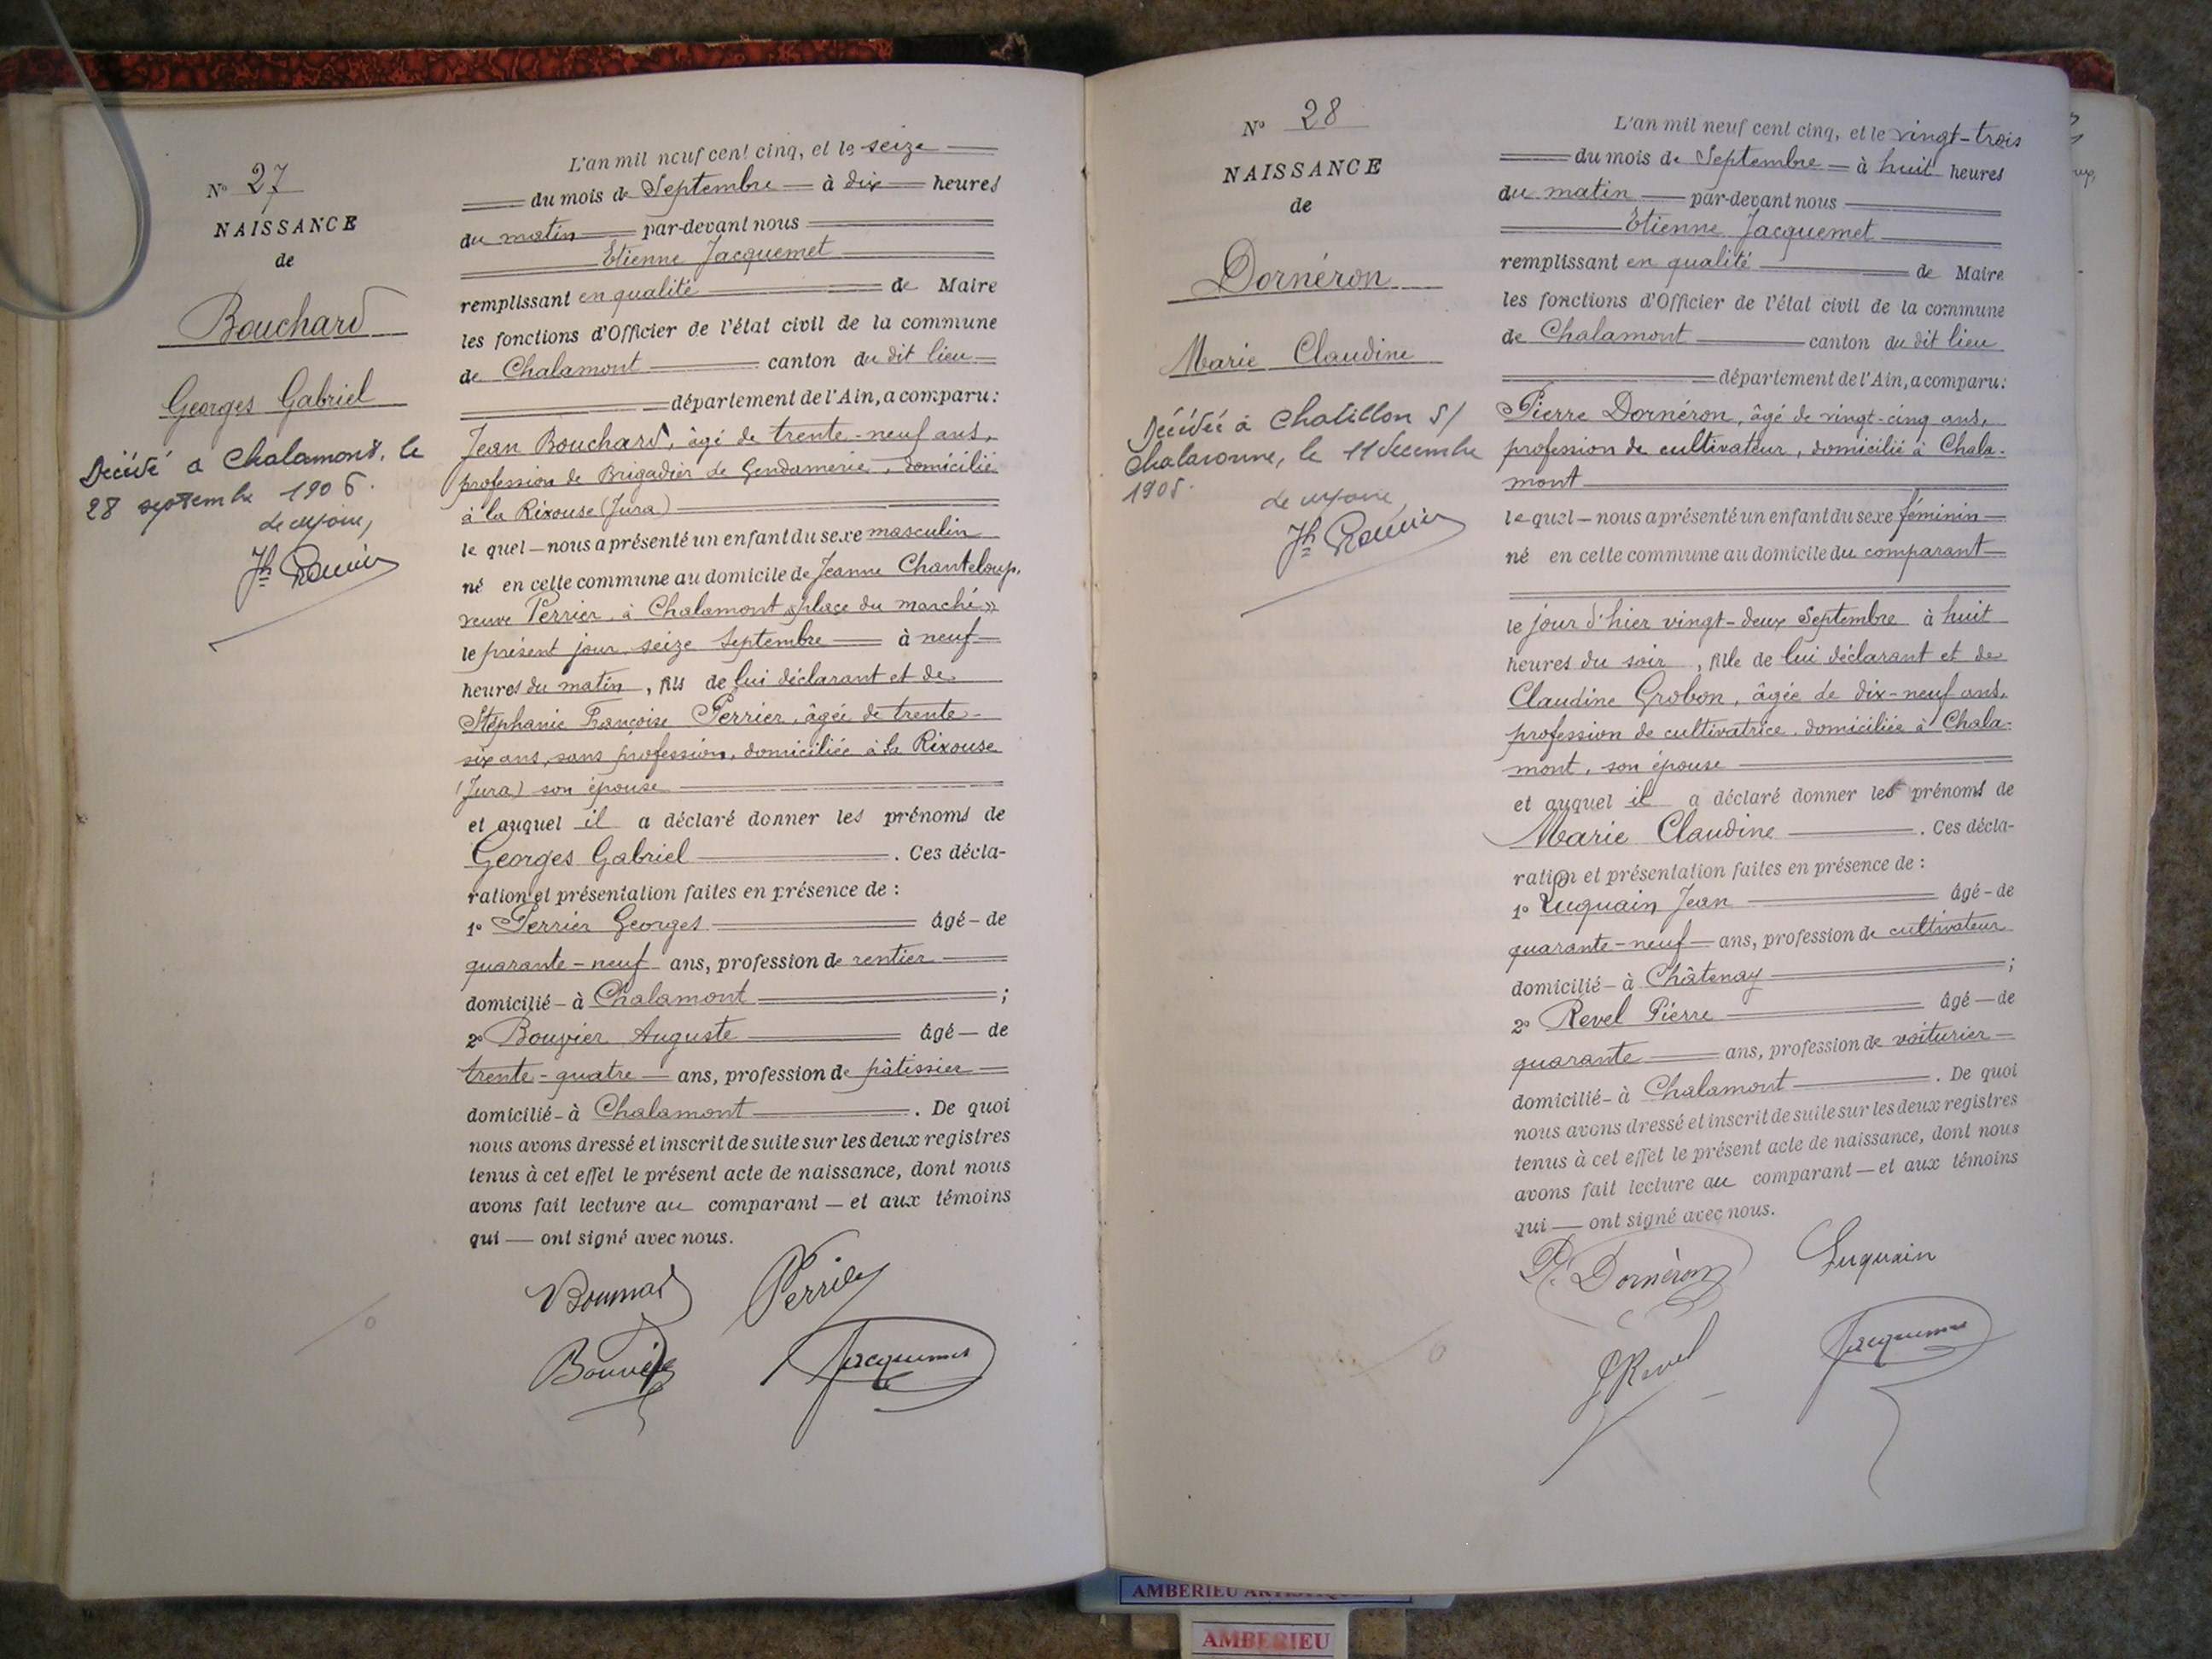 N° 27
NAISSANCE
de
Bouchard
Georges Gabriel
Décédé à Chalamont, le
28 septembre 1905.
Le Maire,
L'an mil neuf cent cinq, et le seize
du mois de Septembre à dix heures
du matin par-devant nous
Etienne Jacquemet
remplissant en qualité de Maire
les fonctions d'Officier de l'état civil de la commune
de Chalamont canton du dit lieu
département de l'Ain, a comparu:
Jean Bouchard, âgé de trente-neuf ans,
profession de Brigadier de Gendarmerie, domicilié
à la Rixouse (Jura)
le quel nous a présenté un enfant du sexe masculin
né en cette commune au domicile de Jeanne Chanteloup,
veuve Perrier, à Chalamont "place du marché"
le présent jour seize Septembre à neuf
heures du matin, fils de lui déclarant et de
Stéphanie Françoise Perrier, âgée de trente-
six ans, sans profession, domiciliée à la Rixouse
(Jura) son épouse
et auquel il a déclaré donner les prénoms de
Georges Gabriel. Ces décla-
ration et présentation faites en présence de :
1° Perrier Georges âgé de
quarante-neuf ans, profession de rentier
domicilié à Chalamont ;
2° Bouvier Auguste âgé de
trente-quatre ans, profession de pâtissier
domicilié à Chalamont. De quoi
nous avons dressé et inscrit de suite sur les deux registres
tenus à cet effet le présent acte de naissance, dont nous
avons fait lecture au comparant et aux témoins
qui ont signé avec nous.
Bouchard Perrier
Bouvier Jacquemet
N° 28
NAISSANCE
de
Dornéron
Marie Claudine
Décédée à Chatillon s/
Chalaronne, le 11 décembre
1905.
Le Maire,
L'an mil neuf cent cinq, et le vingt-trois
du mois de Septembre à huit heures
du matin par-devant nous
Etienne Jacquemet
remplissant en qualité de Maire
les fonctions d'Officier de l'état civil de la commune
de Chalamont canton du dit lieu
département de l'Ain, a comparu:
Pierre Dornéron, âgé de vingt-cinq ans,
profession de cultivateur, domicilié à Chala-
mont
le quel nous a présenté un enfant du sexe féminin
né en cette commune au domicile du comparant
le jour d'hier vingt-deux Septembre à huit
heures du soir, fille de lui déclarant et de
Claudine Grobon, âgée de dix-neuf ans,
profession de cultivatrice, domiciliée à Chala-
mont, son épouse
et auquel il a déclaré donner les prénoms de
Marie Claudine. Ces décla-
ration et présentation faites en présence de :
1° Luquain Jean âgé de
quarante-neuf ans, profession de cultivateur
domicilié à Châtenay ;
2° Revel Pierre âgé de
quarante ans, profession de voiturier
domicilié à Chalamont. De quoi
nous avons dressé et inscrit de suite sur les deux registres
tenus à cet effet le présent acte de naissance, dont nous
avons fait lecture au comparant et aux témoins
qui ont signé avec nous.
P. Dornéron Luquain
Revel Jacquemet
AMBERIEU
AMBERIEU